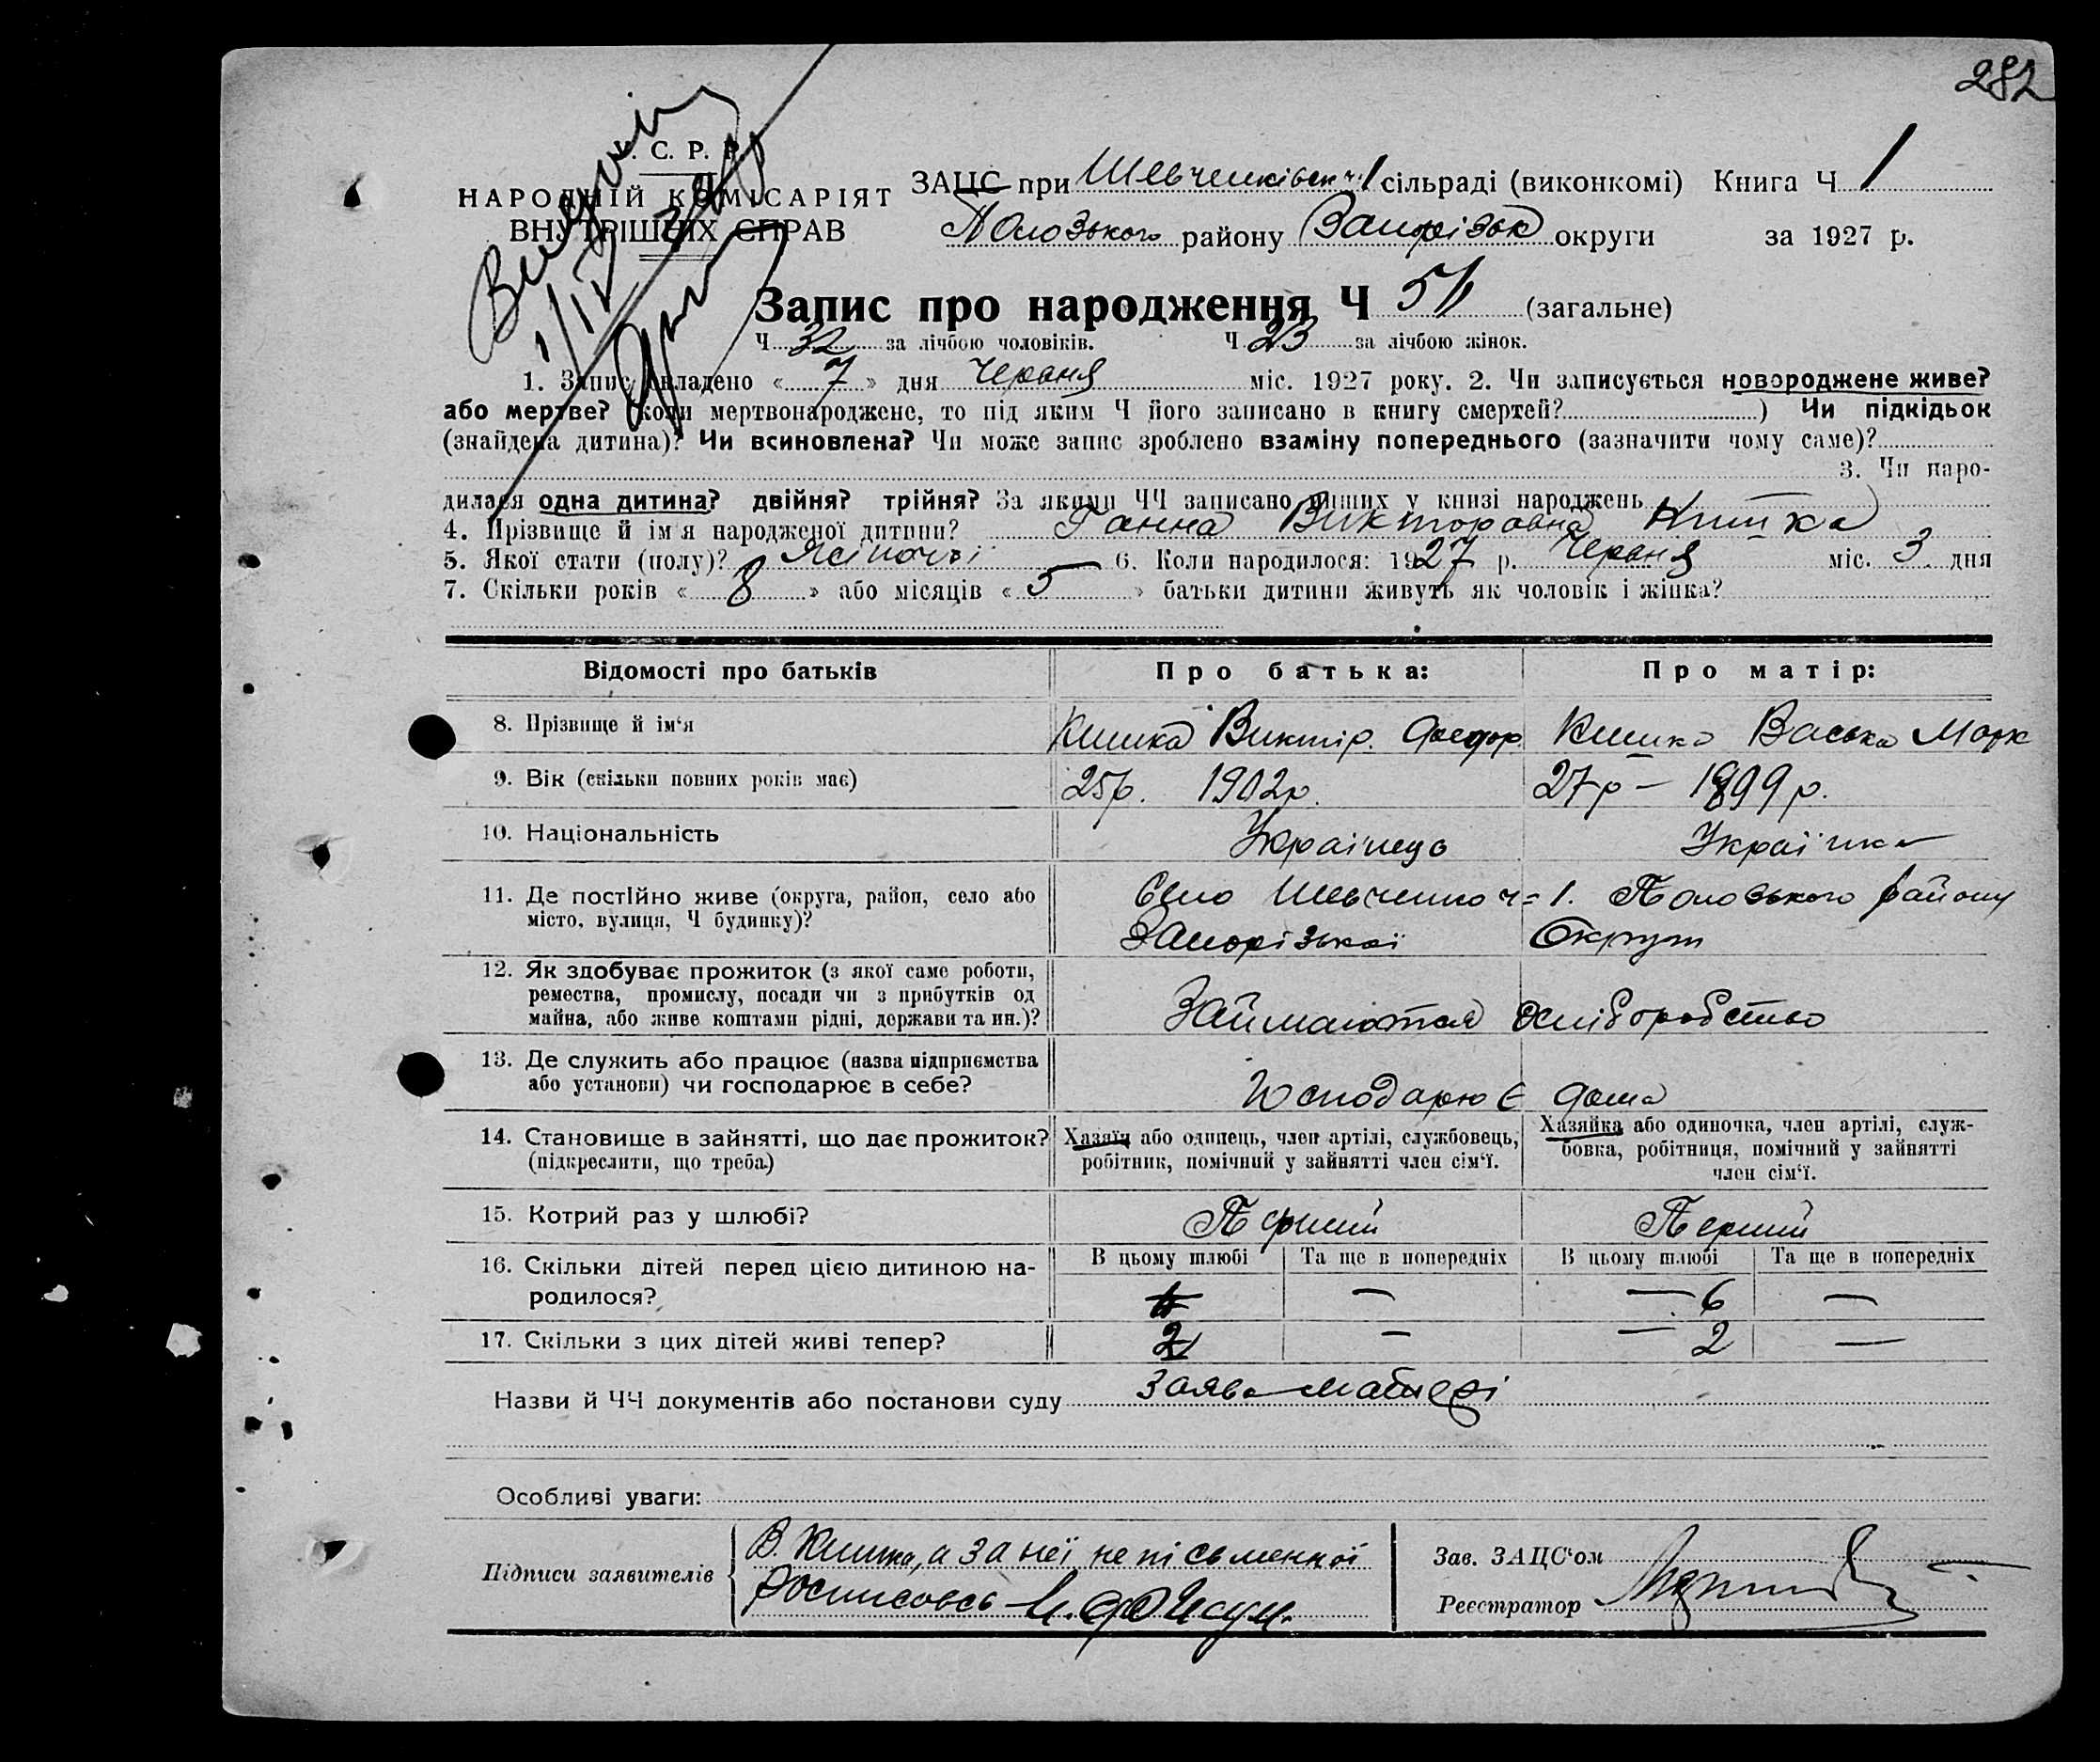 282
У. С. Р. Р.
НАРОДНІЙ КОМІСАРІЯТ
ВНУТРІШНІХ СПРАВ
ЗАЦС при Шевченківськ ч. 1 сільраді (виконкомі) Книга Ч 1
Пологзького району Запорізьк округи за 1927 р.
Запис про народження Ч (загальне)
Ч 32 за лічбою чоловіків. Ч 23 за лічбою жінок.
1. Запис складено « 7 » дня Червня міс. 1927 року. 2. Чи записується новороджене живе?
або мертве? (коли мертвонароджене, то під яким Ч його записано в книгу смертей? ) Чи підкідьок
(знайдена дитина)? Чи всиновлена? Чи може запис зроблено взаміну попереднього (зазначити чому саме)?
3. Чи наро-
дилася одна дитина? двійня? трійня? За якими ЧЧ записано инших у книзі народжень
4. Прізвище й ім'я народженої дитини? Ганна Викторовна Кишка
5. Якої стати (полу)? Жіночої 6. Коли народилося: 1927 р. Червня міс. 3 дня
7. Скільки років « 8 » або місяців « 5 » батьки дитини живуть як чоловік і жінка?
Відомості про батьків Про батька: Про матір:
8. Прізвище й ім'я Кишка Виктір. Федор Кишка Васька Марк
9. Вік (скільки повних років має) 25р. 1902р. 27р – 1899р.
10. Національність Українець Українка
11. Де постійно живе (округа, район, село або Село Шевченко ч= 1. Пологзького району
місто, вулиця, Ч будинку)? Запорізької Округи
12. Як здобуває прожиток (з якої саме роботи,
ремества, промислу, посади чи з прибутків од
майна, або живе коштами рідні, держави та ин.)? Займаются
13. Де служить або працює (назва підприємства
або установи) чи господарює в себе? Господарює дома
14. Становище в зайнятті, що дає прожиток? Хазяїн або одинець, член артілі, службовець, Хазяйка або одиночка, член артілі, служ-
(підкреслити, що треба) робітник, помічний у зайнятті член сім'ї. бовка, робітниця, помічний у зайнятті
член сім'ї.
15. Котрий раз у шлюбі? Перший Перший
16. Скільки дітей перед цією дитиною на- В цьому шлюбі Та ще в попередніх В цьому шлюбі Та ще в попередніх
родилося? — — 6 —
17. Скільки з цих дітей живі тепер? 2 — — 2 —
Назви й ЧЧ документів або постанови суду Заява матері
Особливі уваги:
Підписи заявителів В. Кишка, а за неї неписьменної
Росписовсь
Зав. ЗАЦС'ом
Реєстратор